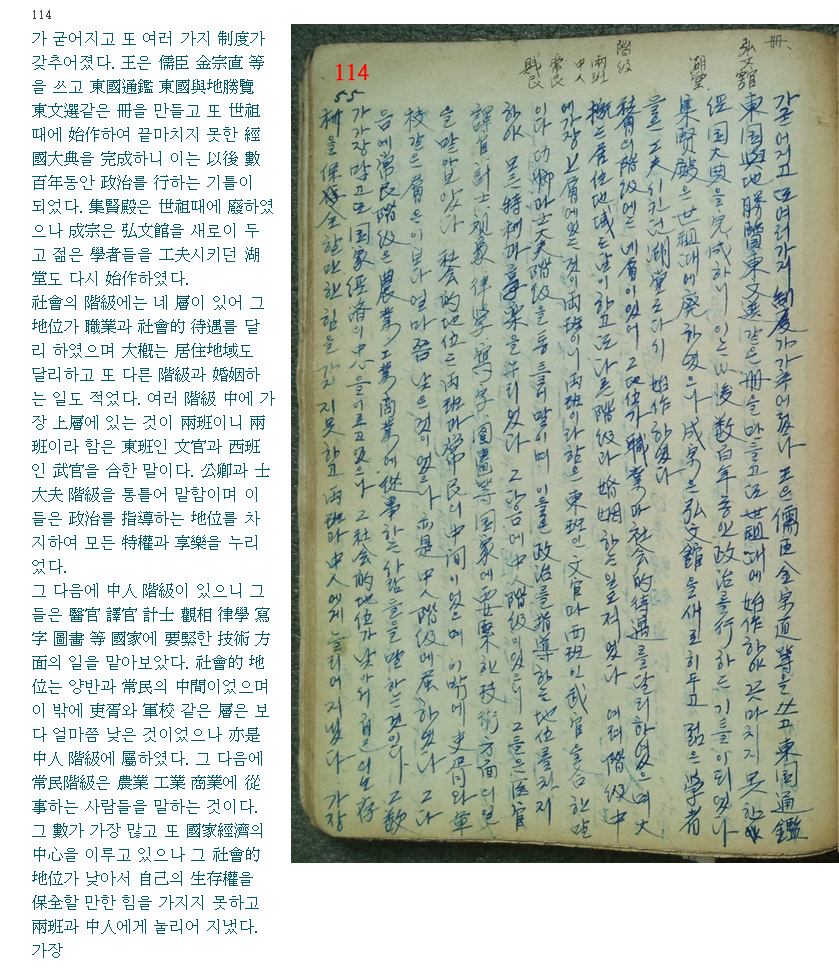 114
가 굳어지고 또 여러 가지 制度가
갖추어졌다. 王은 儒臣 金宗直 等
을 쓰고 東國通鑑 東國與地勝覽
東文選같은 冊을 만들고 또 世祖
때에 始作하여 끝마치지 못한 經
國大典을 完成하니 이는 以後 數
百年동안 政治를 行하는 기틀이
되었다. 集賢殿은 世祖때에 廢하였
으나 成宗은 弘文館을 새로이 두
고 젊은 學者들을 工夫시키던 湖
堂도 다시 始作하였다.
社會의 階級에는 네 層이 있어 그
地位가 職業과 社會的 待遇를 달
리 하였으며 大槪는 居住地域도
달리하고 또 다른 階級과 婚姻하
는 일도 적었다. 여러 階級 中에 가
장 上層에 있는 것이 兩班이니 兩
班이라 함은 東班인 文官과 西班
인 武官을 合한 말이다. 公卿과 士
大夫 階級을 통틀어 말함이며 이
들은 政治를 指導하는 地位를 차
지하여 모든 特權과 享樂을 누리
었다.
그 다음에 中人 階級이 있으니 그
들은 醫官 譯官 計士 觀相 律學 寫
字 圖畵 等 國家에 要緊한 技術 方
面의 일을 맡아보았다. 社會的 地
位는 양반과 常民의 中間이었으며
이 밖에 吏胥와 軍校 같은 層은 보
다 얼마쯤 낮은 것이었으나 亦是
中人 階級에 屬하였다. 그 다음에
常民階級은 農業 工業 商業에 從
事하는 사람들을 말하는 것이다.
그 數가 가장 많고 또 國家經濟의
中心을 이루고 있으나 그 社會的
地位가 낮아서 自己의 生存權을
保全할 만한 힘을 가지지 못하고
兩班과 中人에게 눌리어 지냈다.
가장
114
55
冊、
弘文館
湖堂
階級
兩班
中人
常民
賤民
가 굳어지고 또 여러가지 制度가 갖추어졌다 王은 儒臣 金宗直 等을 쓰고 東国通鑑
東国與地勝覽 東文選같은 冊을 만들고 또 世祖때에 始作하야 끝마치지 못한
經国大典을 完成하니 이는 以後 数百年동안 政治를 行하는 기틀이 되었다
集賢殿은 世祖때에 廃하였으나 成宗은 弘文館을 새로히 두고 젊은 學者
들을 工夫시키던 湖堂도 다시 始作하였다
社會의 階級에는 네 層이 있어 그 地位가 職業과 社會的 待遇를 달리하였으며 大
槪는 居住地域도 달리하고 또 다른 階級과 婚姻하는 일도 적었다 여러 階級 中
에 가장 上層에 있는 것이 兩班이니 兩班이라함은 東班인 文官과 西班인 武官을 合한 말
이다 公卿과 士大夫階級을 통틀어 말함이며 이들은 政治를 指導하는 地位를 차지
하야 모든 特權과 享樂을 누리었다 그 다음에 中人階級이 있으니 그들은 医官
譯官 計士 觀象 律學 寫字 圖畫 等 国家에 要緊한 技術方面의 일
을 맡아보았다 社会的地位는 兩班과 常民의 中间이었으며 이밖에 吏胥와 軍
校같은 層은 이보다 얼마쯤 낮은 것이었으나 亦是 中人階級에 屬하였다 그 다
음에 常民階級은 農業 工業 商業에 從事하는 사람들을 말하는 것이다 그 数
가 가장 많고 또 国家經済의 中心을 이루고 있으나 그 社會的地位가 낮아서 自己의 生存
權을 保全할만한 힘을 가지지 못하고 兩班과 中人에게 눌리어 지냈다 가장